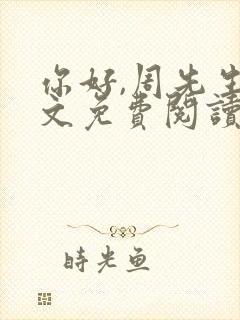 你好,周先生
文免費閱讀
時光魚